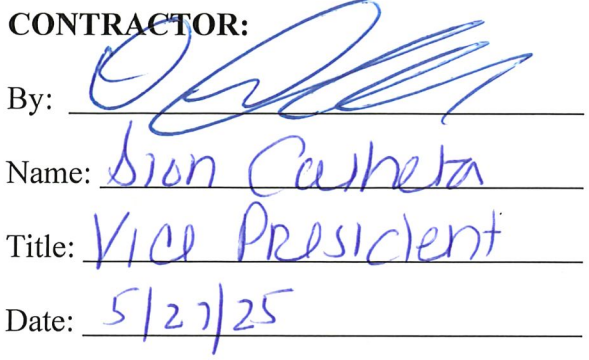 CONTRACTOR:
By:
Name: Dion
Title: Vice President
Date: 5/27/25